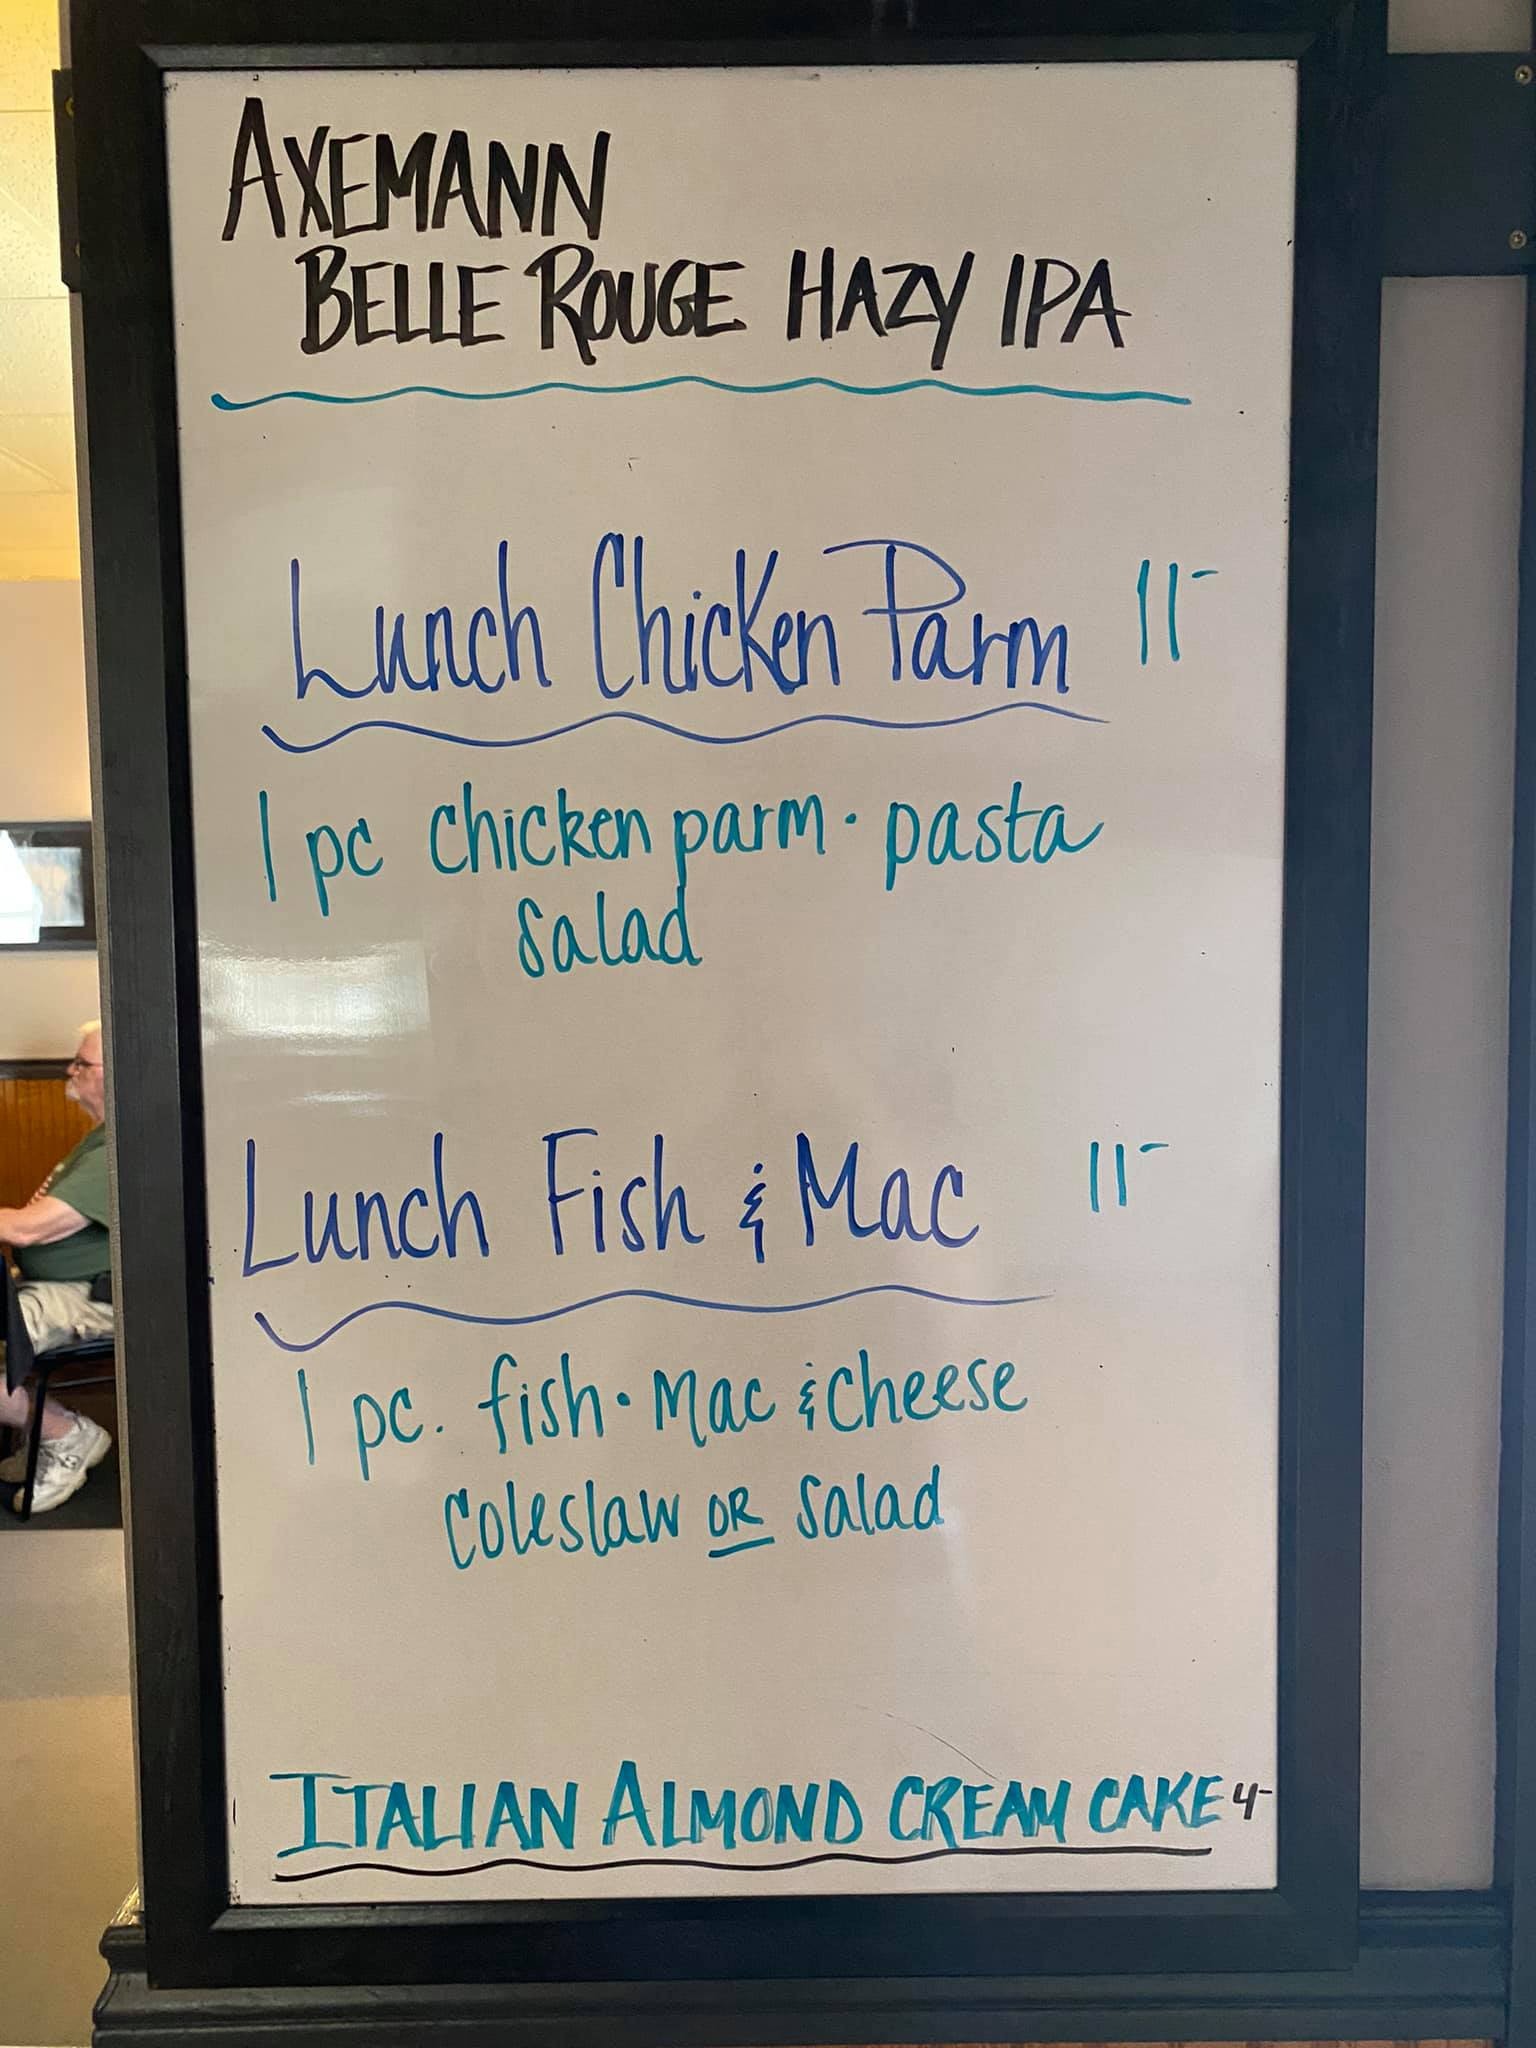 AXEMANN
BELLE ROUGE HAZY IPA
Lunch Chicken Parm 11-
1 pc chicken parm · pasta
salad
Lunch Fish & Mac 11-
1 pc. fish · Mac & cheese
Coleslaw OR Salad
ITALIAN ALMOND CREAM CAKE 4-